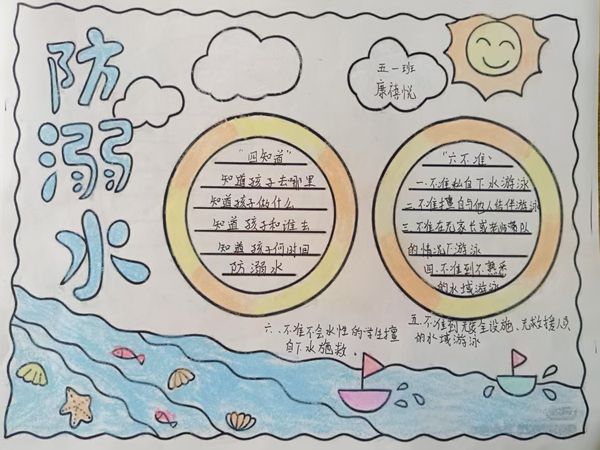 防溺水
五一班
康禧悦
"四知道"
知道孩子去哪里
知道孩子做什么
知道孩子和谁去
知道孩子何时间
防溺水
"六不准"
一.不准私自下水游泳
二.不准擅自与他人结伴游泳
三.不准在无家长或老师带队
的情况下游泳
四.不准到不熟悉
的水域游泳
五.不准到无安全设施、无救援人员
的水域游泳
六.不准不会水性的学生擅
自下水施救.